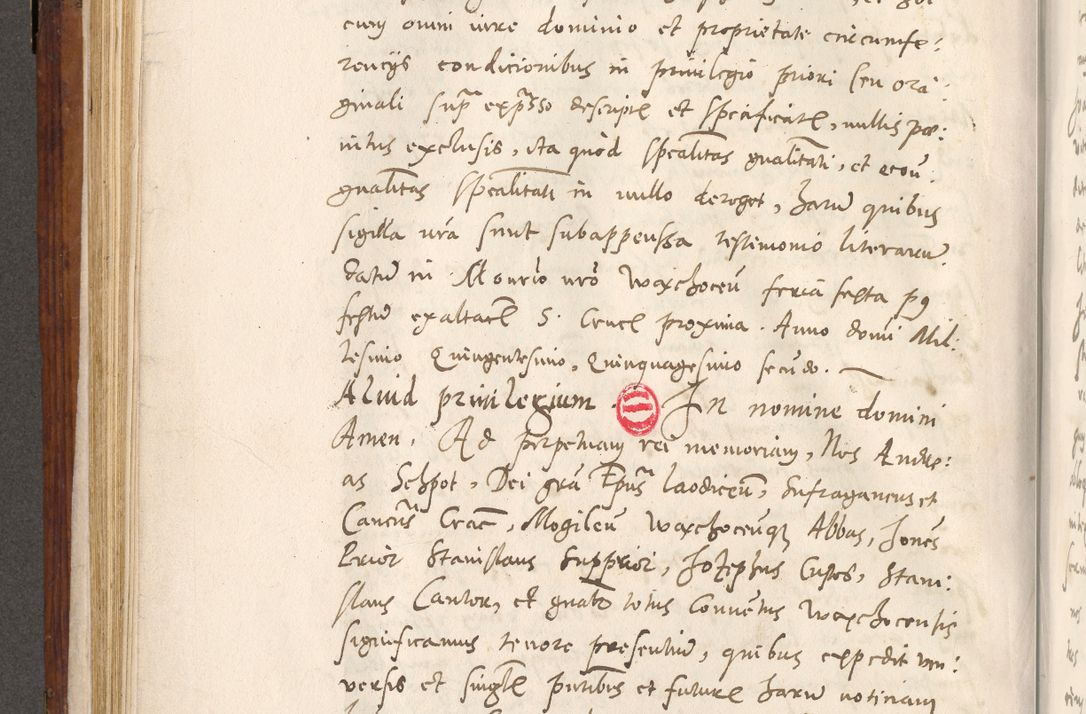 cum omni iure dominio et proprietate circumfe:
rencijs condicionibus in priuilegio priori seu ori:
ginali supra expsso descript et specificat, nullis pœ:
nitus exclusis, ita quòd spealitas gnalitati, et econ:
gnalitas spealitati in nullo deroget, harum quibus
sigilla nrã sunt subappensa testimonio literarum.
datum in Monrio nrõ Waxchocen feria sexta pꝰ
festum exaltac S. Cruc proxima. Anno domi Mil:
lesimo Quingentesimo, Quinquagesimo secũdo.
Aliud priuilegium In nomine domini
Amen, Ad perpetuam rei memoriam, Nos Andre:
as Schpot, Dei grã Epus laodiceñ, Sufraganeus et
Cancus Crac, Mogileñ Waxchoceñqꝫ Abbas, Jones
Prior Stanislaus Supprior, Jozephus Custos, Stani:
slaus Cantor, et gnalr totus Conuentus Waxchocensis
significamus tenore presentium, quibus expedit vni:
versis et singul pntibus et futur harum noticiam